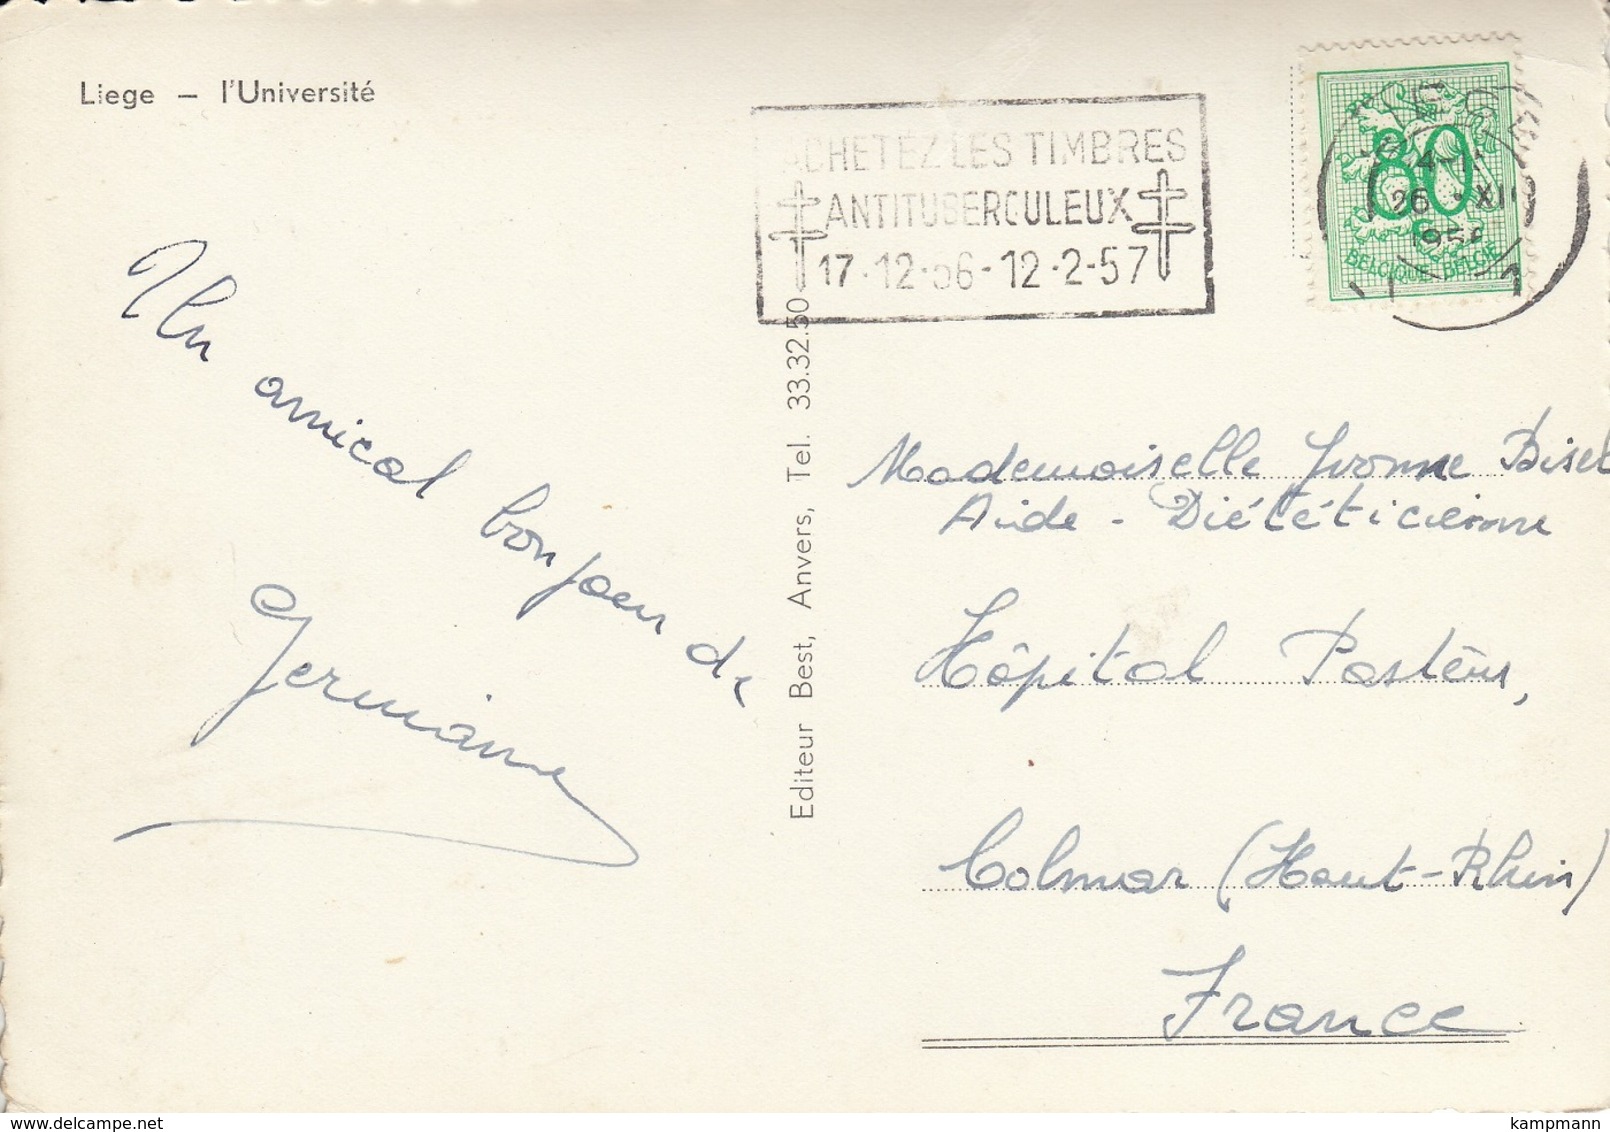 Liege – l'Université
ACHETEZ LES TIMBRES
ANTITUBERCULEUX
17-12-56-12-2-57
80
26 XII
1956
BELGIQUE-BELGIE
1
Un amical bonjour de
Germaine
Editeur Best, Anvers, Tel. 33.32.50
Mademoiselle Yvonne Bisel
Aide-Diététicienne
Hôpital Pasteur,
Colmar (Haut-Rhin)
France
delcampe.net
kampmann